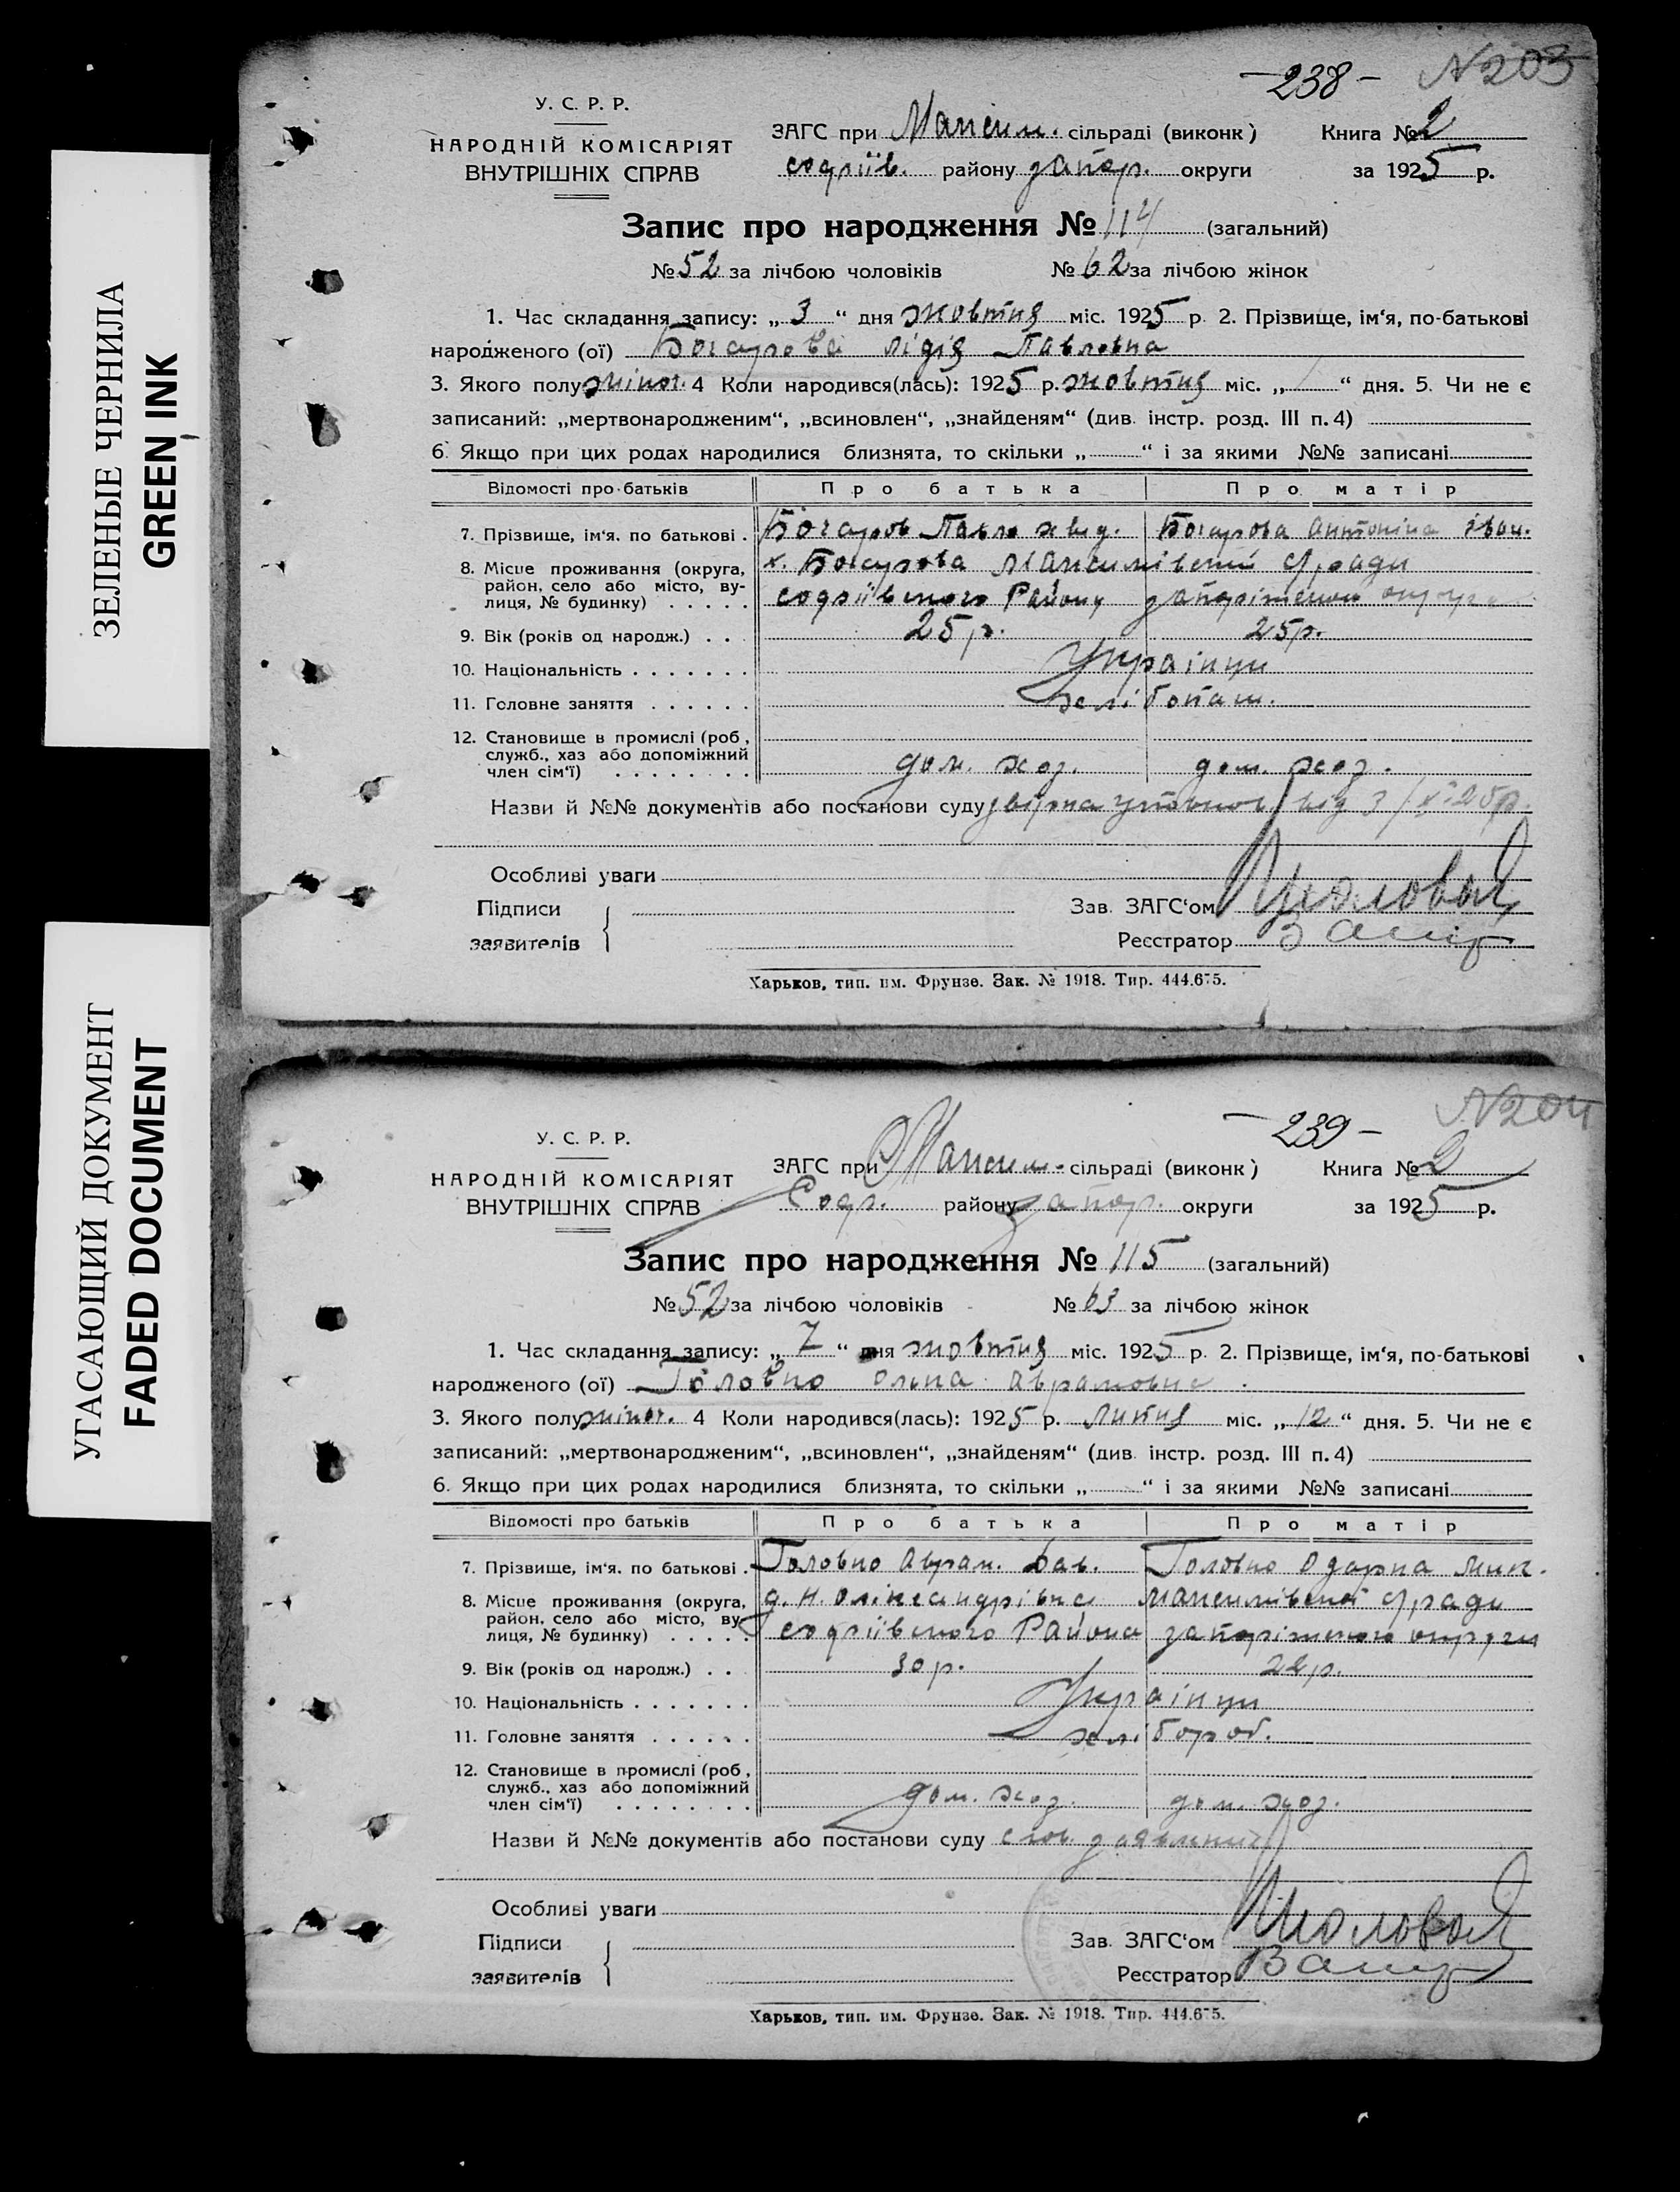 ЗЕЛЕНЫЕ ЧЕРНИЛА
GREEN INK
УГАСАЮЩИЙ ДОКУМЕНТ
FADED DOCUMENT
-238- N203
У. С. Р. Р.
НАРОДНІЙ КОМІСАРІЯТ
ВНУТРІШНІХ СПРАВ
ЗАГС при Максим. сільраді (виконк) Книга № 2
софіїв. району запор. округи за 1925 р.
Запис про народження № 114 (загальний)
№ 52 за лічбою чоловіків № 62 за лічбою жінок
1. Час складання запису: „ 3 “ дня жовтня міс. 1925 р. 2. Прізвище, ім‘я, по-батькові
народженого (ої) Бочарова Лідія Павловна
3. Якого полу жіноч. 4 Коли народився(лась): 1925 р. жовтня міс. „ 1 “ дня. 5. Чи не є
записаний: „мертвонародженим“, „всиновлен“, „знайденям“ (див. інстр. розд. III п. 4)
6. Якщо при цих родах народилися близнята, то скільки „ “ і за якими №№ записані
Відомості про батьків Про батька Про матір
7. Прізвище, ім‘я. по батькові . Бочаров Павло Бочарова Антоніна Іван.
8. Місце проживання (округа, район, село або місто, вулиця, № будинку) . . . . . х. Бочарова Максимівської с/ради
софіївского Району запоріжської округи
9. Вік (років од народж.) . . . 25 р. 25 р.
10. Національність . . . . . . . Українци
11. Головне заняття . . . . . . хлібопаш.
12. Становище в промислі (роб, служб., хаз або допоміжний член сім‘ї) . . . . . . . . дом. хоз. дом. хоз.
Назви й №№ документів або постанови суду
Особливі уваги
Підписи Зав. ЗАГС‘ом
заявителів Реєстратор
Харьков, тип. им. Фрунзе. Зак. № 1918. Тир. 444.675.
-239- N204
У. С. Р. Р.
НАРОДНІЙ КОМІСАРІЯТ
ВНУТРІШНІХ СПРАВ
ЗАГС при Максим. сільраді (виконк) Книга № 2
Соф. району запор. округи за 1925 р.
Запис про народження № 115 (загальний)
№ 52 за лічбою чоловіків № 63 за лічбою жінок
1. Час складання запису: „ 7 “ дня жовтня міс. 1925 р. 2. Прізвище, ім‘я, по-батькові
народженого (ої) Головко Ольна Аврамовна
3. Якого полу жіноч. 4 Коли народився(лась): 1925 р. липня міс. „ 12 “ дня. 5. Чи не є
записаний: „мертвонародженим“, „всиновлен“, „знайденям“ (див. інстр. розд. III п. 4)
6. Якщо при цих родах народилися близнята, то скільки „ “ і за якими №№ записані
Відомості про батьків Про батька Про матір
7. Прізвище, ім‘я. по батькові . Головко Аврам. Дав. Головко Одарка Мик.
8. Місце проживання (округа, район, село або місто, вулиця, № будинку) . . . . . д. Н. Олександрівка Максимівської с/ради
софіївского Района запоріжского округи
9. Вік (років од народж.) . . 30 р. 22 р.
10. Національність . . . . . . . Українци
11. Головне заняття . . . . . . хлібороб.
12. Становище в промислі (роб, служб., хаз або допоміжний член сім‘ї) . . . . . . . . дом. хоз. дом. хоз.
Назви й №№ документів або постанови суду
Особливі уваги
Підписи Зав. ЗАГС‘ом
заявителів Реєстратор
Харьков, тип. им. Фрунзе. Зак. № 1918. Тир. 444.675.